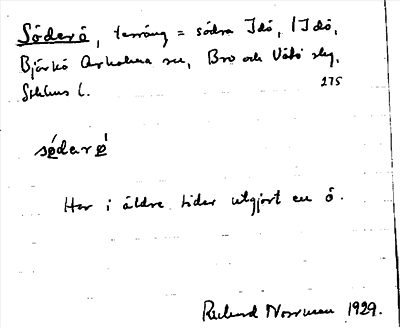 Söderö, terräng = södra Idö, / Idö,
Björkö Arholma sn, Bro och Vätö skg,
Sthlms l. 275
sǿdarǿ
Har i äldre tider utgjort en ö.
Rickard Norrman 1929.